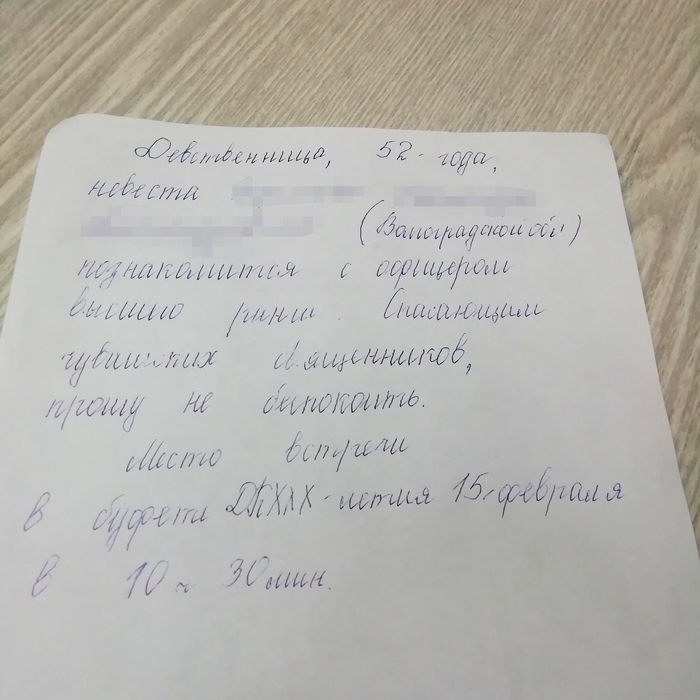 Девственница, 52 года,
невеста
(Волгоградской обл)
познакомится с офицером
высшего ранга. Спасающим
чувашских священников,
прошу не беспокоить.
Место встречи
в буфете ДКХХХ-летия 15 февраля
в 10 ч 30 мин.